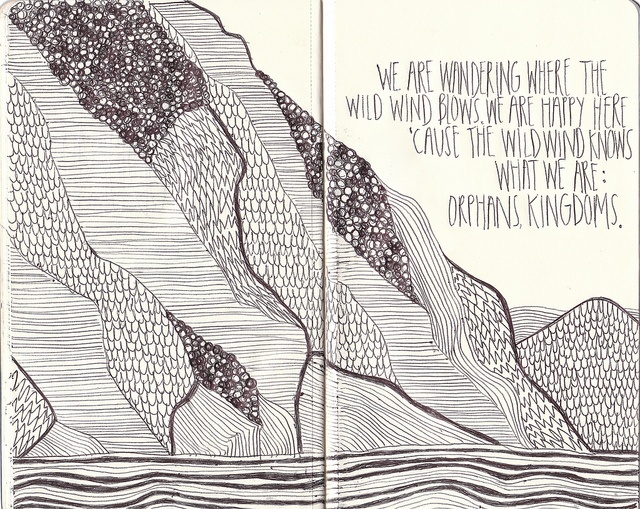 WE ARE WANDERING WHERE THE
WILD WIND BLOWS. WE ARE HAPPY HERE
'CAUSE THE WILD WIND KNOWS
WHAT WE ARE:
ORPHANS, KINGDOMS.